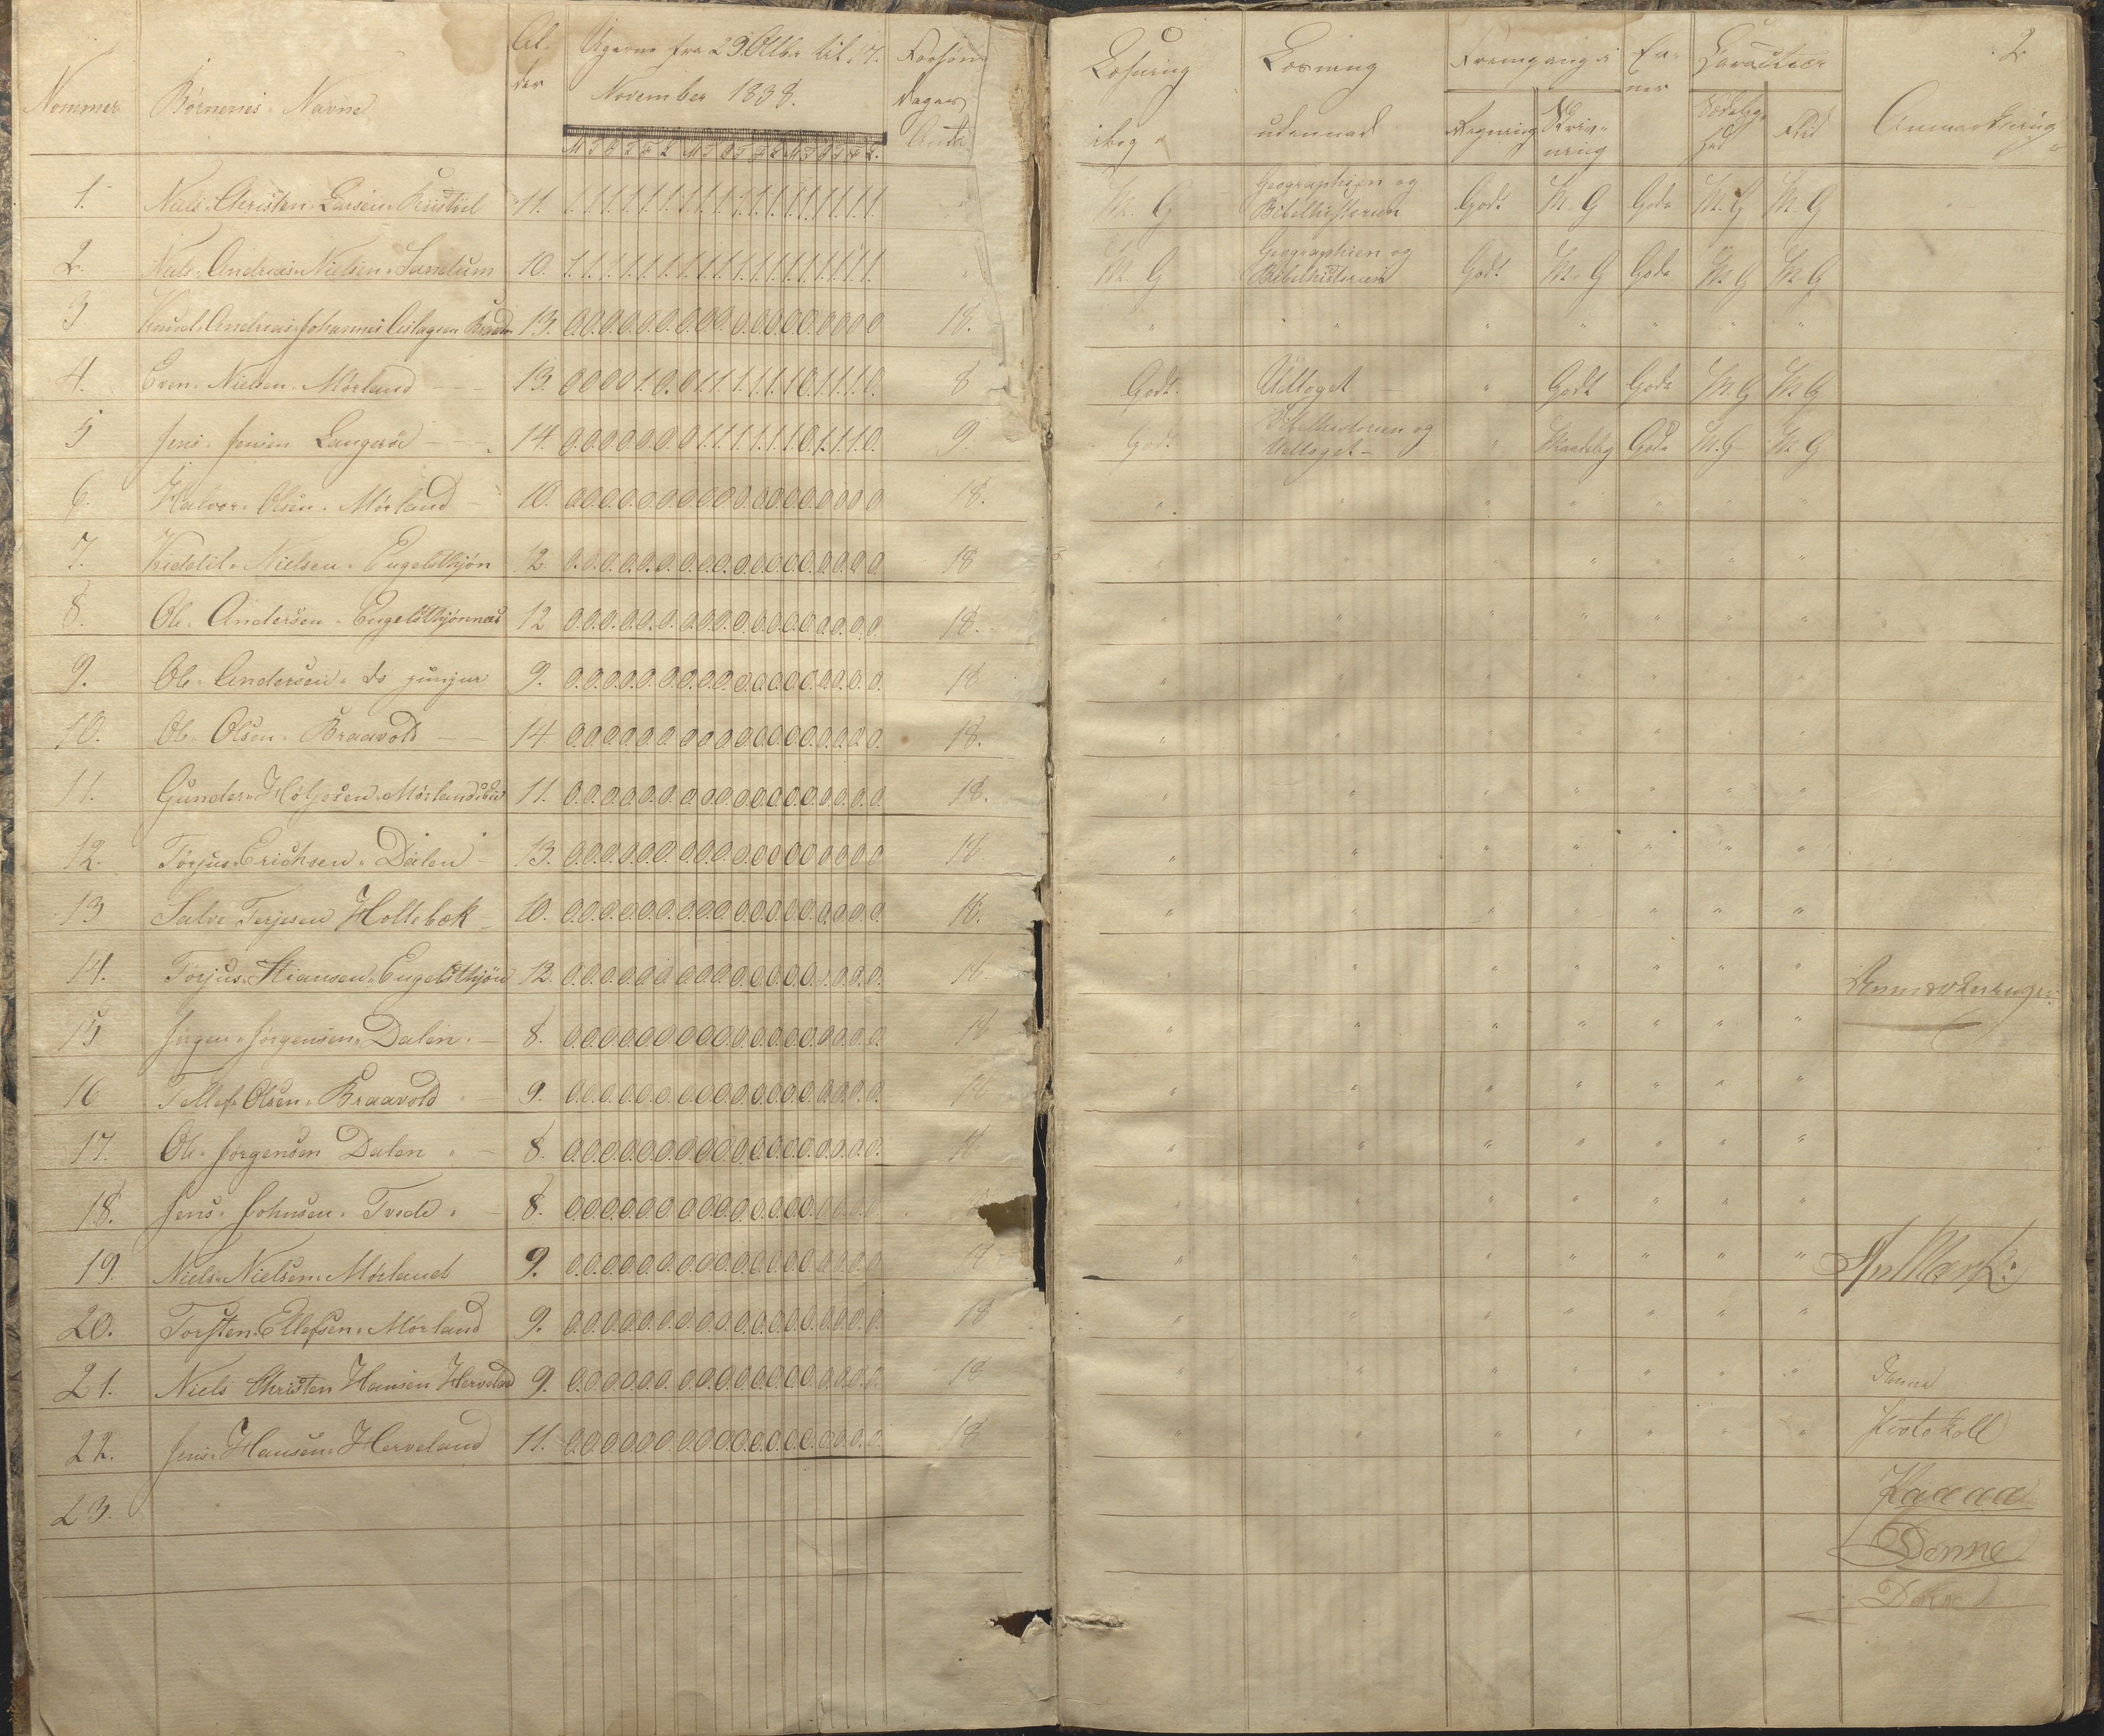 2
Nommer Børnenes Navne Al- Ugerne fra 29 Octbr til 17. Forsøm-
der November 1838. Dages
Antal
M T O T F L M T O T F L M T O T F L
Læsning Læsning Fremgang i Ev- Caracteer
ibog udennad Regning Skriv- ner Sædelig- Flid Anmærkning
ning hed
1. Niels Christen Larsen 11. 1.1.1.1.1.1.1.1.1.1.1.1.1.1.1.1.1.1. " M. G Geographien og Godt M. G Gode M. G M. G
Bibelhistorien
2. Niels Andreas Nielsen Sandum 10. 1.1.1.1.1.1.1.1.1.1.1.1.1.1.1.1.1.1. " M. G Geographien og Godt M. G Gode M. G M. G
Bibelhistorien
3 Knud Andreas Johannes 13. 0.0.0.0.0.0.0.0.0.0.0.0.0.0.0.0.0.0 18. " " " " " " "
4. Even Nielsen Mørland 13. 0 0 0 0 1.0.0 1.1.1.1.1.1 0.1.1.1.0. 8 Godt. Udtoget " Godt Gode M. G M. G
5 Jens Jensen Langerød 14. 0.0.0.0.0.0.0 1.1.1.1.1.1 0.1.1.1.0. 9. Godt Bibelhistorien og " Maadelig Gode M. G M. G
Udtoget
6. Halvor Olsen Mørland 10. 0.0.0.0.0.0.0.0.0.0.0.0.0.0.0.0.0.0 18. " " " " " " "
7. Kiddil Nielsen Engelsthjøn 12. 0.0.0.0.0.0.0.0.0.0.0.0.0.0.0.0.0.0. 18 " " " " " " "
8. Ole Andersen Engelsthjønnes 12 0.0.0.0.0.0.0.0.0.0.0.0.0.0.0.0.0.0. 18. " " " " " " "
9. Ole Andersen ds junjur 9. 0.0.0.0.0.0.0.0.0.0.0.0.0.0.0.0.0.0. 18 " " " " " " "
10. Ole Olsen Braavold 14 0.0.0.0.0.0.0.0.0.0.0.0.0.0.0.0.0.0. 18. " " " " " " "
11. Gunder Høljesen 11. 0.0.0.0.0.0.0.0.0.0.0.0.0.0.0.0.0.0. 18. " " " " " " "
12. Törjus Erichsen Dalen 13. 0.0.0.0.0.0.0.0.0.0.0.0.0.0.0.0.0.0 18 " " " " " " "
13 Salve Terjesen Holtebæk 10. 0.0.0.0.0.0.0.0.0.0.0.0.0.0.0.0.0.0. 18. " " " " " " "
14. Törjus Stiansen Engelsthjön 13. 0.0.0.0.0.0.0.0.0.0.0.0.0.0.0.0.0.0. 18. " " " " " " "
15 Jörgen Jörgensen Dalen 8. 0.0.0.0.0.0.0.0.0.0.0.0.0.0.0.0.0.0. 18 " " " " " " "
16 Tellef Olsen Braavold 9. 0.0.0.0.0.0.0.0.0.0.0.0.0.0.0.0.0.0. 18 " " " " " " "
17. Ole Jörgensen Dalen 8. 0.0.0.0.0.0.0.0.0.0.0.0.0.0.0.0.0.0. 18 " " " " " " "
18. Jens Johnsen Tvede 8. 0.0.0.0.0.0.0.0.0.0.0.0.0.0.0.0.0.0 " " " " " " "
19. Niels Nielsen Mörland 9. 0.0.0.0.0.0.0.0.0.0.0.0.0.0.0.0.0.0 18 " " " " " " "
20. Torsten Ellefsen Mörland 9. 0.0.0.0.0.0.0.0.0.0.0.0.0.0.0.0.0.0. 18 " " " " " " "
21. Niels Christen Hansen 9. 0.0.0.0.0.0.0.0.0.0.0.0.0.0.0.0.0.0. 18 " " " " " " " Denne
22. Jens Hansen Herveland 11. 0.0.0.0.0.0.0.0.0.0.0.0.0.0.0.0.0.0. 18 " " " " " " " Protokoll
23.
Denne